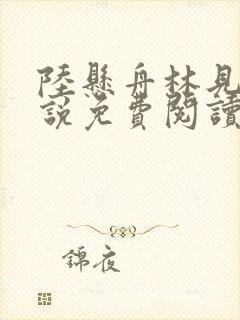 陸懸舟林見
說免費閱讀
錦夜